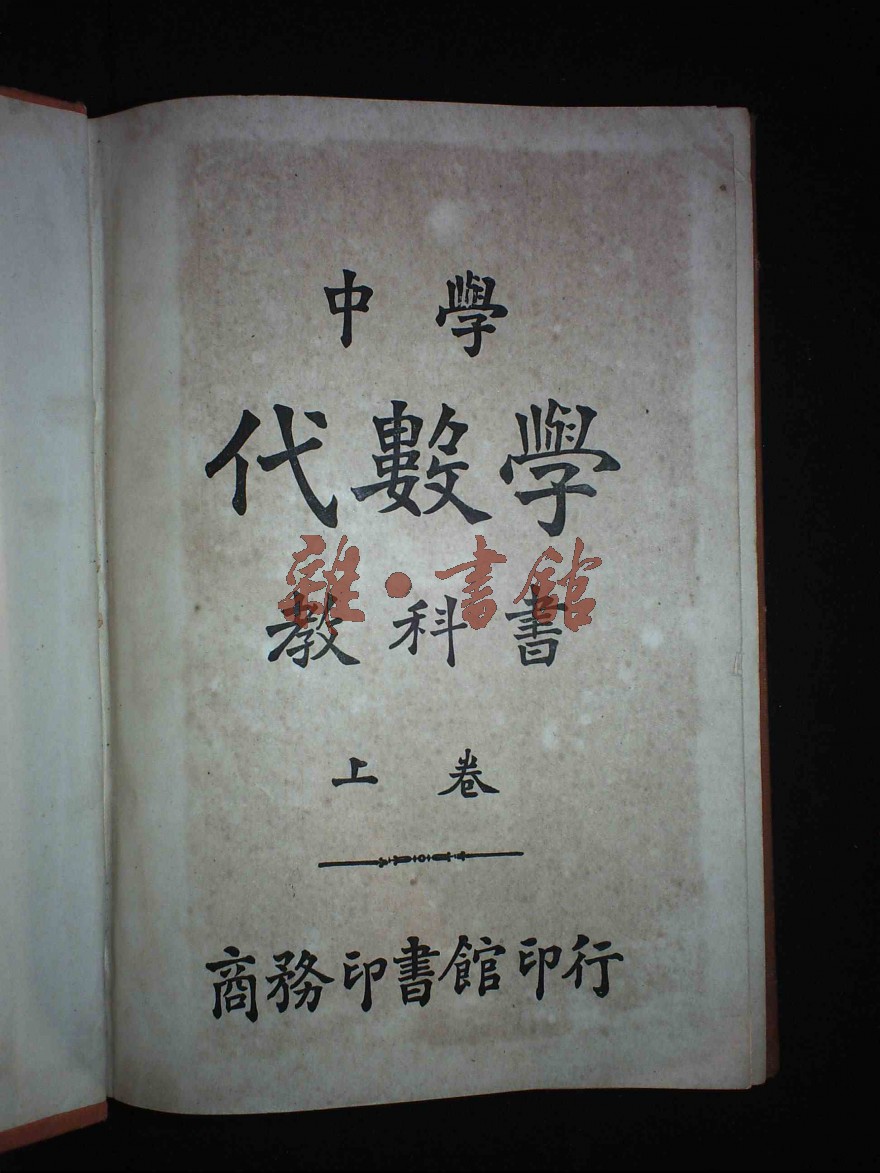 中學
代數學
雜·書館
教科書
上卷
商務印書館印行